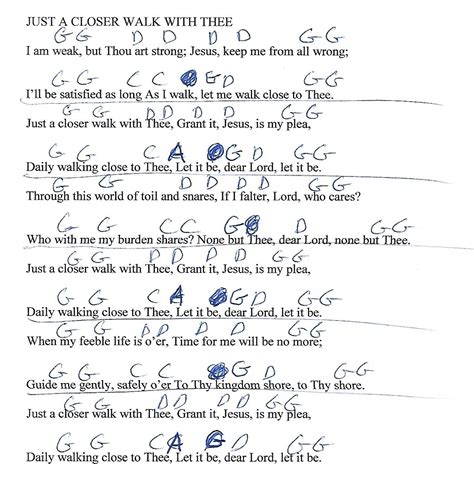 JUST A CLOSER WALK WITH THEE
G G D D D D G G
I am weak, but Thou art strong; Jesus, keep me from all wrong;
G G C C G D G G
I'll be satisfied as long As I walk, let me walk close to Thee.
G G D D D D G G
Just a closer walk with Thee, Grant it, Jesus, is my plea,
G G C A G D G G
Daily walking close to Thee, Let it be, dear Lord, let it be.
G G D D D D G G
Through this world of toil and snares, If I falter, Lord, who cares?
G G C C G D G G
Who with me my burden shares? None but Thee, dear Lord, none but Thee.
G G D D D D G G
Just a closer walk with Thee, Grant it, Jesus, is my plea,
G G C A G D G G
Daily walking close to Thee, Let it be, dear Lord, let it be.
G G D D D D G G
When my feeble life is o'er, Time for me will be no more;
G G C C G D G G
Guide me gently, safely o'er To Thy kingdom shore, to Thy shore.
G G D D D D G G
Just a closer walk with Thee, Grant it, Jesus, is my plea,
G G C A G D G G
Daily walking close to Thee, Let it be, dear Lord, let it be.